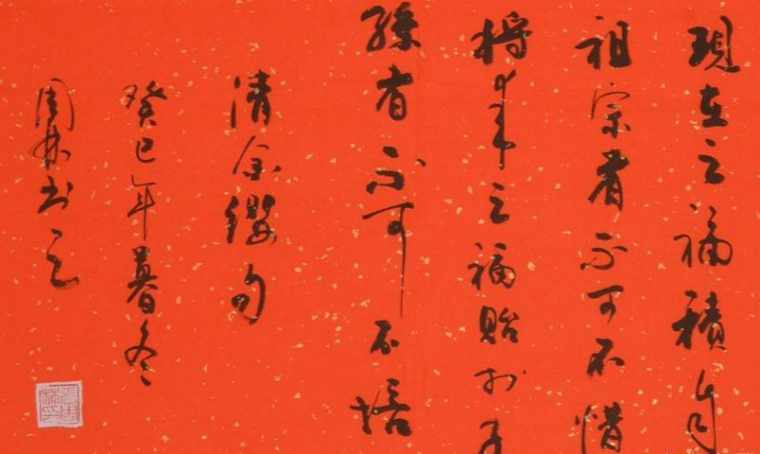 現在之福積自
祖宗者不可不惜
將来之福貽於子
孫者不可不培
清金纓句
癸巳年暮冬
周林书之